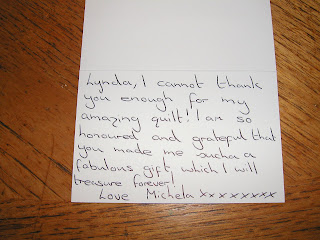 Lynda, I cannot thank
you enough for my
amazing quilt! I am so
honoured and grateful that
you made me such a
fabulous gift, which I will
treasure forever!
Love Michela xxxxxxxx